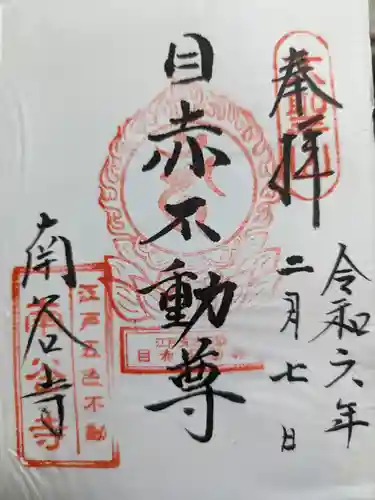 奉拝
令和六年
二月七日
目赤不動尊
南谷寺
江戸五色不動
南谷寺